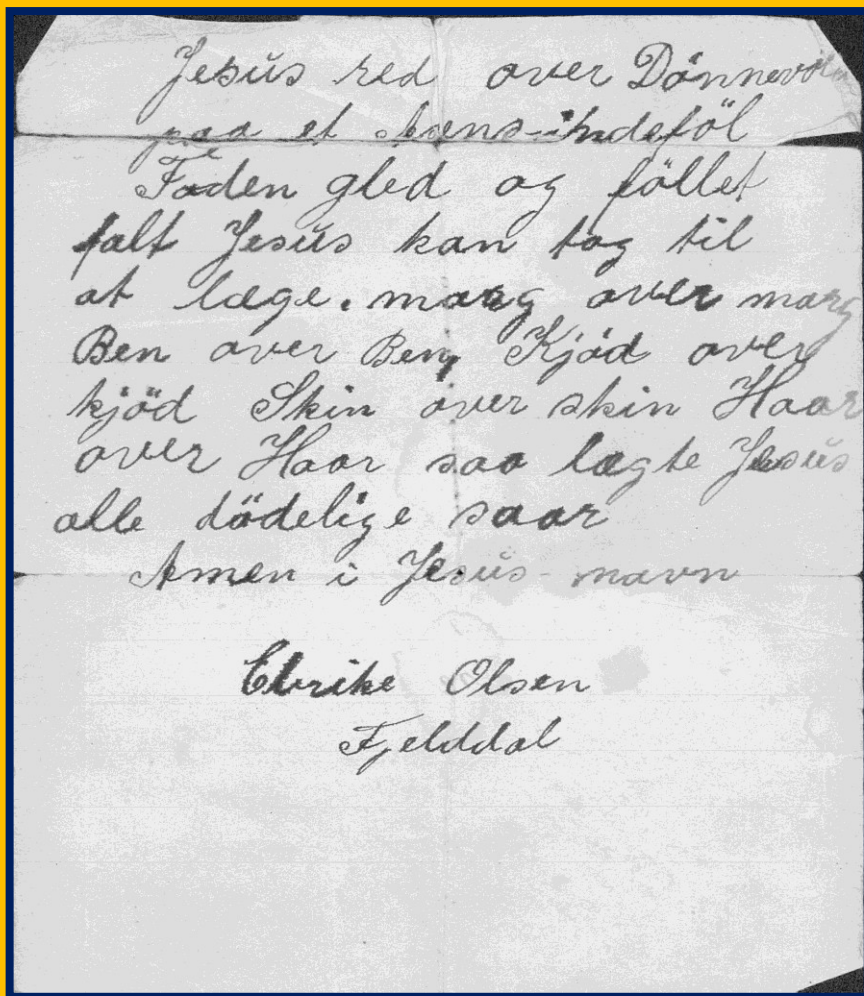 Jesus red over Dönnevold
paa et Aasens-indeföl
Foden gled og föllet
falt Jesus kan tag til
at læge. marg over marg
Ben over Ben, Kjöd over
kjöd Skin over skin Haar
over Haar saa lægte Jesus
alle dödelige saar
Amen i Jesus navn
Olsen
Fjelddal